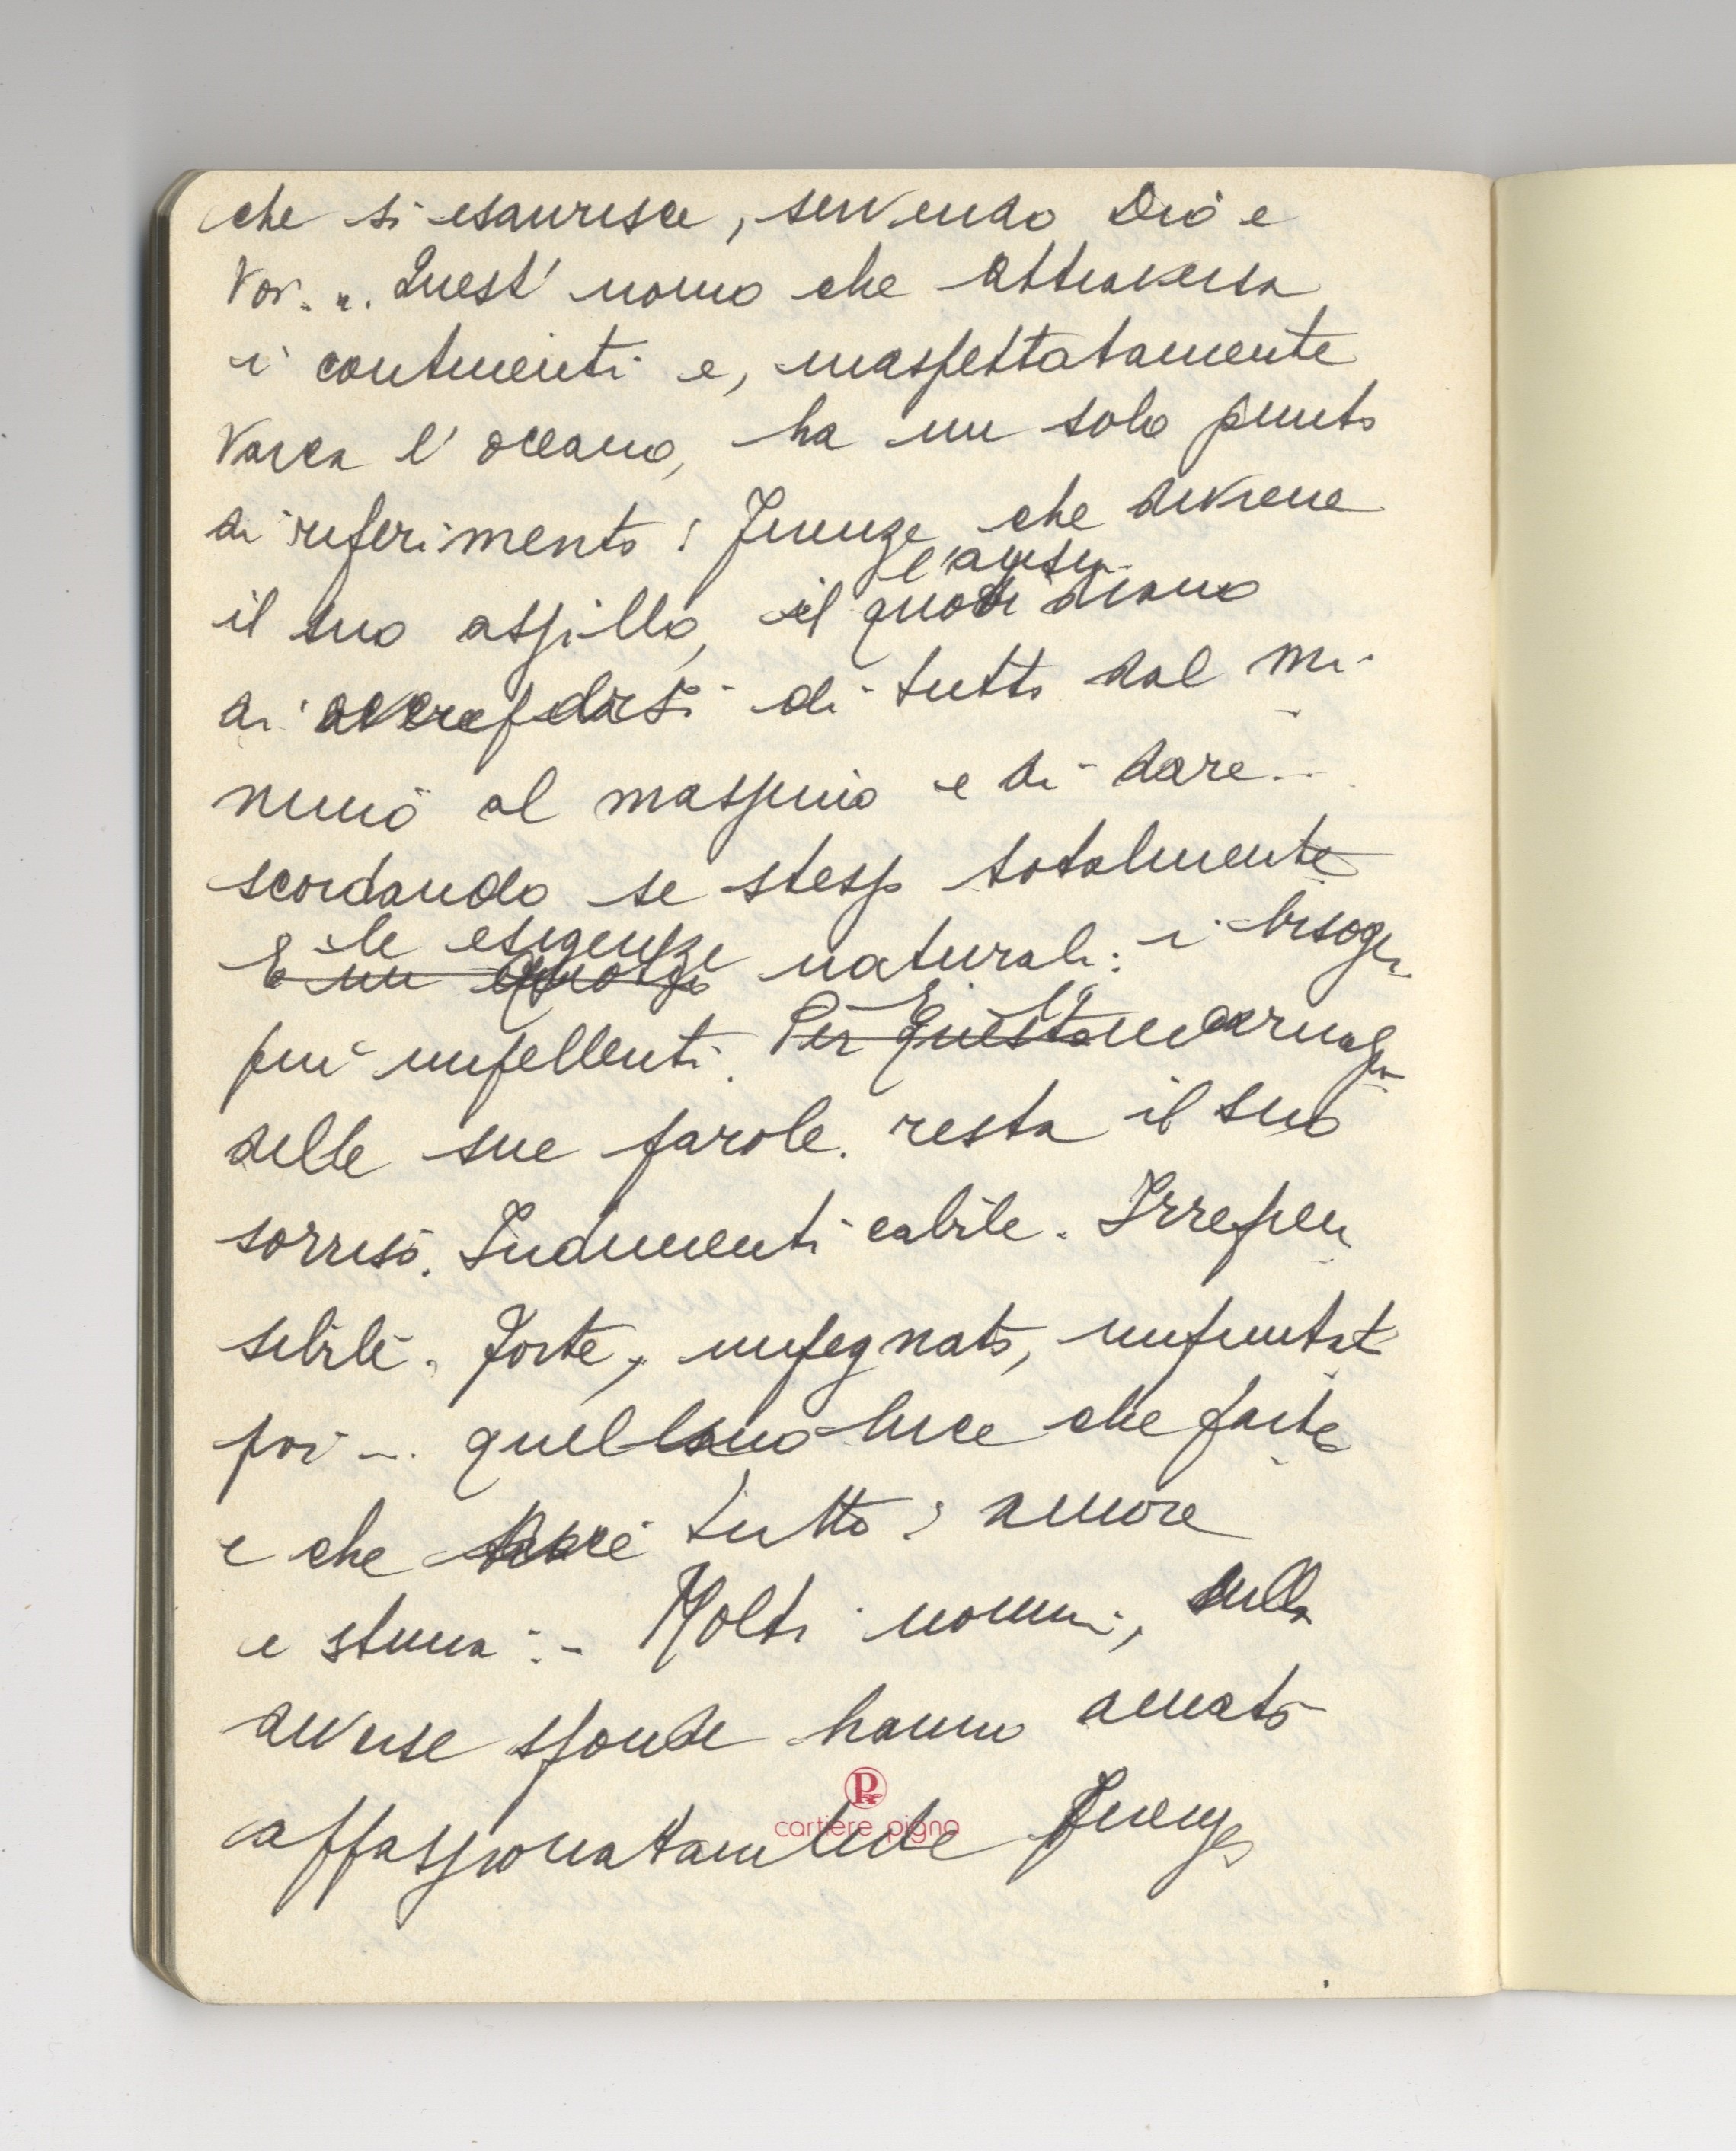 che si esaurisce, servendo Dio e
Voi... Quest' uomo che attraversa
i continenti e, inaspettatamente
varca l' oceano, ha un solo punto
di riferimento: Firenze che diviene
l'
il suo assillo, il quotidiano
di di tutto dal mi-
nimo al massimo e di dare...
scordando se stesso totalmente
le esigenze naturali: i bisogni
E un
più impellenti.
Per questo
delle sue parole. resta il suo
sorriso. Indimenticabile. Irrepren
sibile. Forte, impegnato, impuntat
poi ... quel luce che parte
e che tutto: amore
e stima:- Molti uomini, sulle
diverse sponde hanno amato
appassionatamente Firenze
cartiere pigna